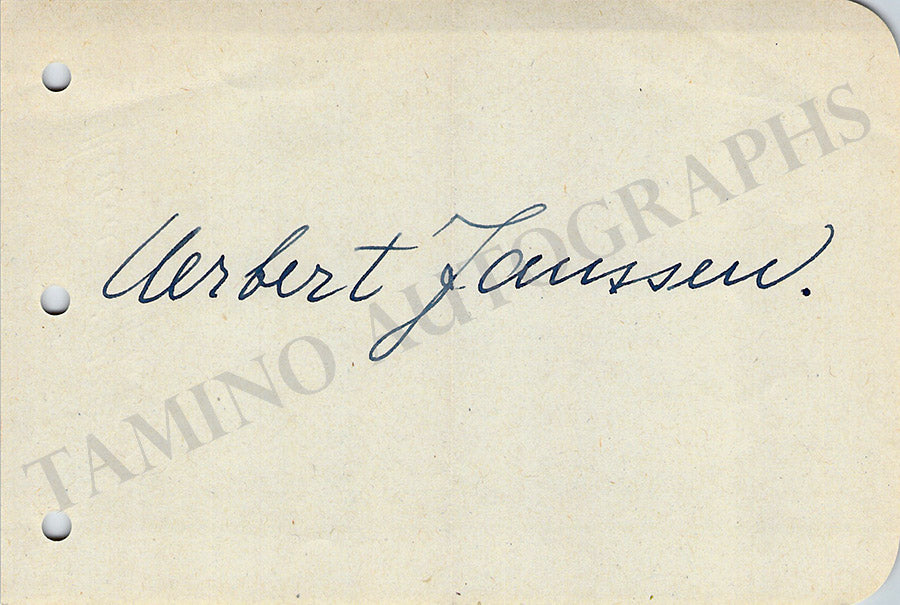 Herbert Janssen.
TAMINO AUTOGRAPHS